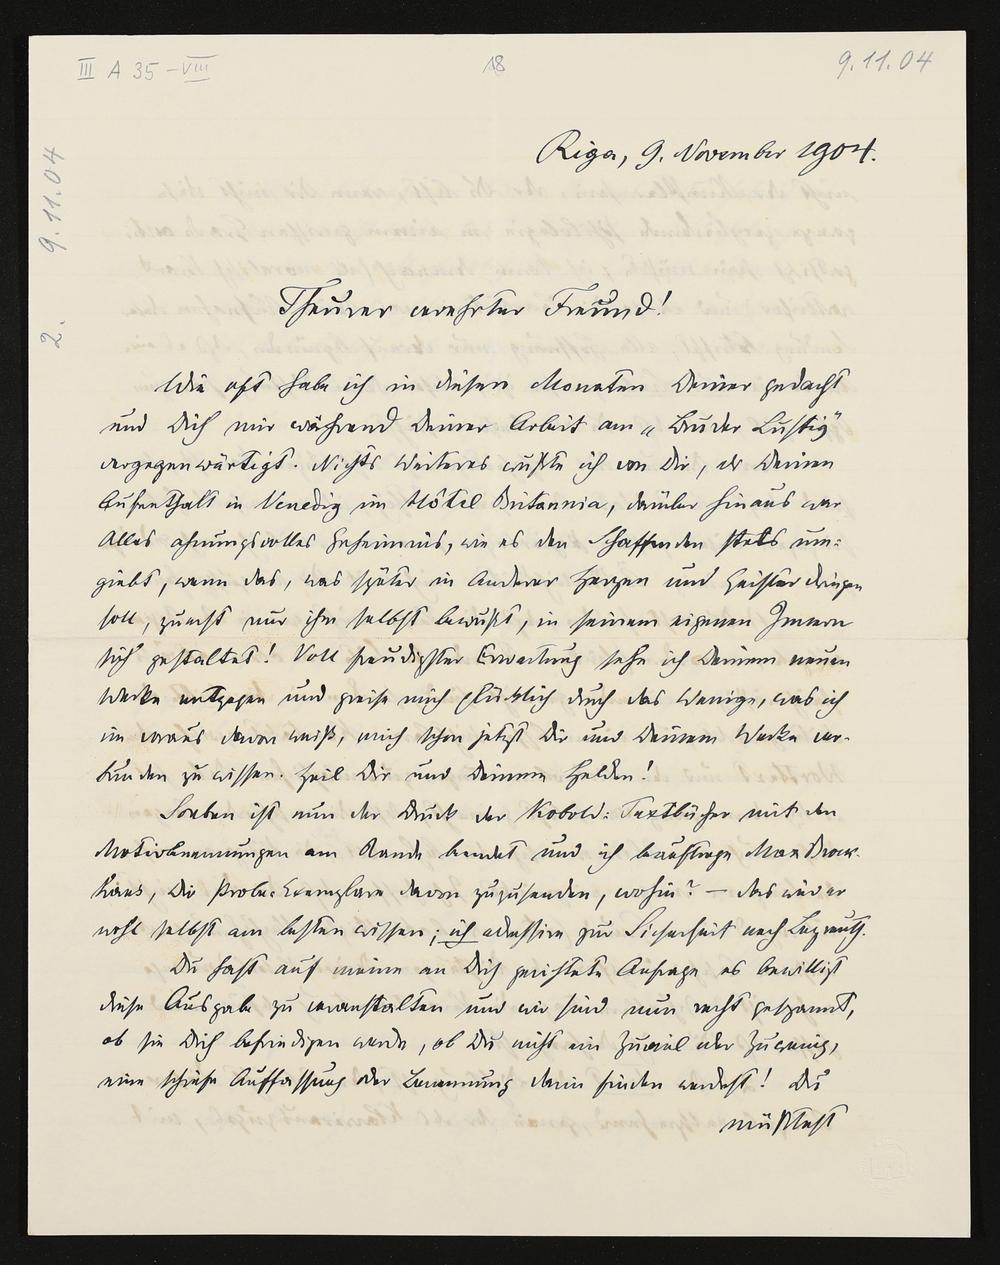 III A 35 - VIII
18
9.11.04
2. 9.11.04
Riga, 9. November 1904.
Theurer verehrter Freund!
Wie oft habe ich in diesen Monaten Deiner gedacht
und Dich mir während Deiner Arbeit am „Bruder Lustig"
vergegenwärtigt. Nichts Weiteres wußte ich von Dir, als Deinen
Aufenthalt in Venedig im Hôtel Britannia, darüber hinaus war
Alles ahnungsvolles Geheimnis, wie es den Schaffenden stets um-
giebt, wenn das, was später in Anderer Herzen und Geister dringen
soll, zuerst nur ihm selbst bewußt, in seinem eigenen Innern
sich gestaltet! Voll freudigster Erwartung sehe ich Deinem neuen
Werke entgegen und preise mich glücklich durch das Wenige, was ich
im voraus davon weiß, mich schon jetzt Dir und Deinem Werke ver-
bunden zu wissen. Heil Dir und Deinem Helden!
Soeben ist nun der Druck der Kobold-Textbücher mit den
Motivbenennungen am Rande beendet und ich beauftrage Max Brock-
haus, Dir Probe-Exemplare davon zuzusenden, wohin? — das wird er
wohl selbst am besten wissen; ich adressire zur Sicherheit nach Bayreuth.
Du hast auf meine an Dich gerichtete Anfrage es bewilligt
diese Ausgabe zu veranstalten und wir sind nun recht gespannt,
ob sie Dich befriedigen werde, ob Du nicht ein Zuviel oder Zuwenig,
eine schiefe Auffassung oder Benennung darin finden werdest! Du
müßtest